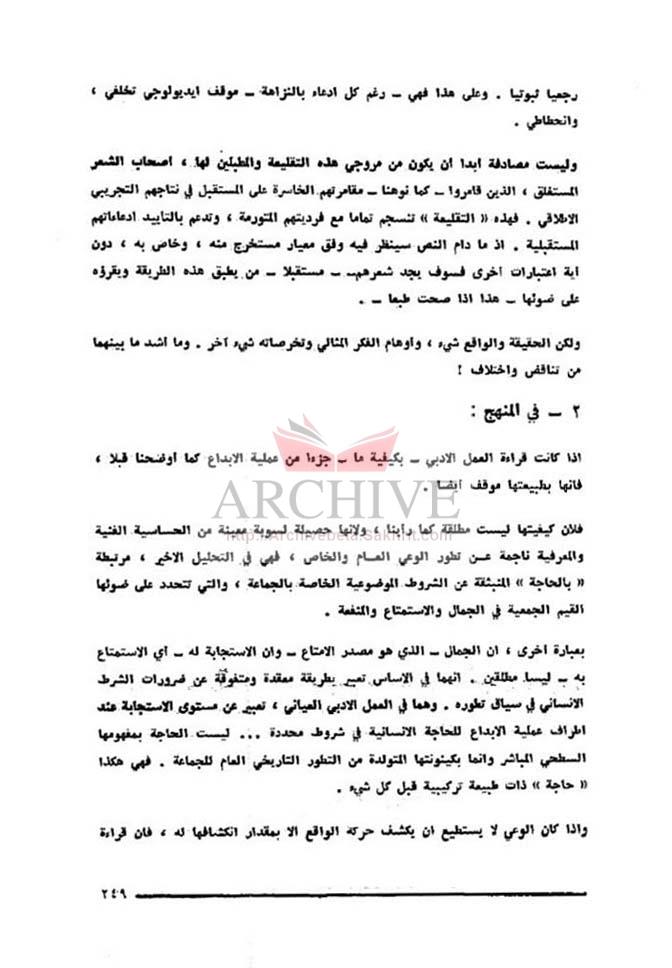 رجعيا ثبوتيا . وعلى هذا فهي ــ رغم كل ادعاء بالنزاهة ــ موقف ايديولوجي تخلفي ،
وانحطاطي .
وليست مصادفة أبدا أن يكون من مروجي هذه التقليعة والمطبلين لها ، أصحاب الشعر
المستغلق ، الذين قامروا ــ كما نوهنا ــ مقامرتهم الخاسرة على المستقبل في نتاجهم التجريبي
الاطلاقي . فهذه « التقليعة » تنسجم تماما مع فرديتهم المتورمة ، وتدعم بالتأييد ادعاءاتهم
المستقبلية . اذ ما دام النص سينظر فيه وفق معيار مستخرج منه ، وخاص به ، دون
أية اعتبارات أخرى فسوف يجد شعرهم ــ مستقبلا ــ من يطبق هذه الطريقة ويقرؤه
على ضوئها ــ هذا اذا صحت طبعا ــ .
ولكن الحقيقة والواقع شيء ، وأوهام الفكر المثالي وتخرصاته شيء آخر . وما أشد ما بينهما
من تناقض واختلاف !
٢ ــ في المنهج :
اذا كانت قراءة العمل الادبي ــ بكيفية ما ــ جزءا من عملية الابداع كما أوضحنا قبلا ،
فانها بطبيعتها موقف أيضا .
ARCHIVE
http://Archivebeta.Sakhrit.com
فلان كيفيتها ليست مطلقة كما رأينا ، ولانها حصيلة لسوية معينة من الحساسية الفنية
والمعرفية ناجمة عن تطور الوعي العام والخاص ، فهي في التحليل الاخير ، مرتبطة
« بالحاجة » المنبثقة عن الشروط الموضوعية الخاصة بالجماعة ، والتي تتحدد على ضوئها
القيم الجمعية في الجمال والاستمتاع والمنفعة .
بعبارة أخرى ، ان الجمال ــ الذي هو مصدر الامتاع ــ وان الاستجابة له ــ أي الاستمتاع
به ــ ليسا مطلقين . انهما في الاساس تعبير بطريقة معقدة ومتفوقة عن ضرورات الشرط
الانساني في سياق تطوره . وهما في العمل الادبي العياني ، تعبير عن مستوى الاستجابة عند
اطراف عملية الابداع للحاجة الانسانية في شروط محددة ... ليست الحاجة بمفهومها
السطحي المباشر وانما بكينونتها المتولدة من التطور التاريخي العام للجماعة . فهي هكذا
« حاجة » ذات طبيعة تركيبية قبل كل شيء .
واذا كان الوعي لا يستطيع ان يكشف حركة الواقع الا بمقدار انكشافها له ، فان قراءة
٢٤٩